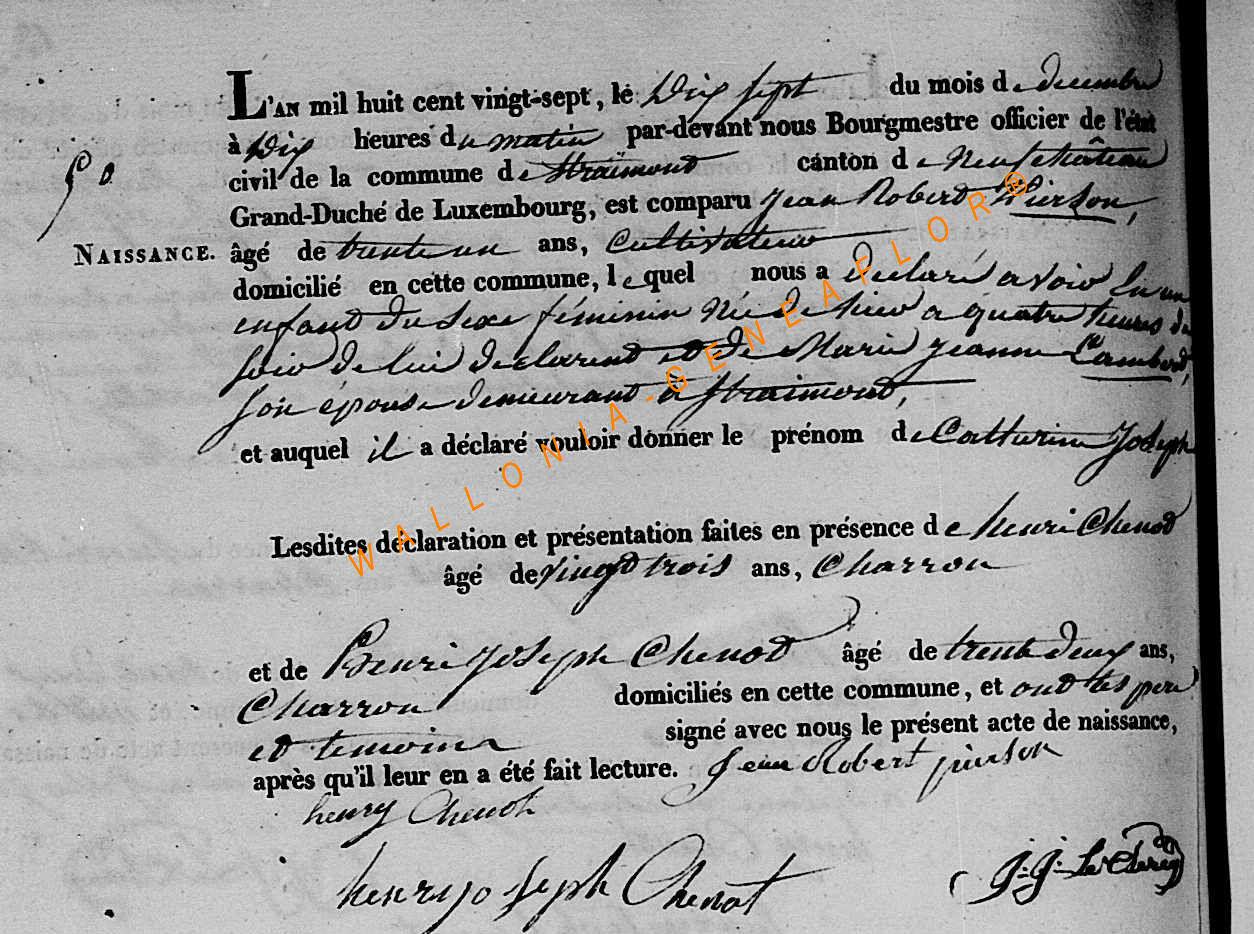 L'AN mil huit cent vingt-sept, le Dix sept du mois de decembre
à Dix heures du matin par-devant nous Bourgmestre officier de l'état
civil de la commune de Straimont canton de Neufchâteau
Grand-Duché de Luxembourg, est comparu Jean Robert Pierson,
NAISSANCE. âgé de trente un ans, Cultivateur
domicilié en cette commune, lequel nous a declaré avoir eu un
enfant du sexe féminin née de hier a quatre heures du
soir de lui declarent et de Marie Jeanne Lambert,
son épouse demeurant à Straimont,
et auquel il a déclaré vouloir donner le prénom de Catherine Joseph
Lesdites déclaration et présentation faites en présence de henri Chenot
âgé de vingt trois ans, Charron
et de Henri Joseph Chenot âgé de trente deux ans,
Charron domiciliés en cette commune, et ont les pere
et temoins signé avec nous le présent acte de naissance,
après qu'il leur en a été fait lecture. Jean Robert pierson
henry Chenot
henry joseph Chenot J. J. Le Clercq
WALLONIA-GENEAFLOR®